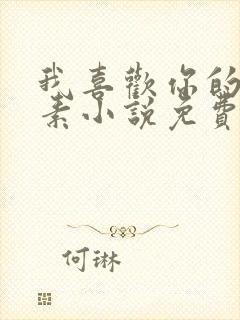 我喜歡你的
素小說免費
何琳